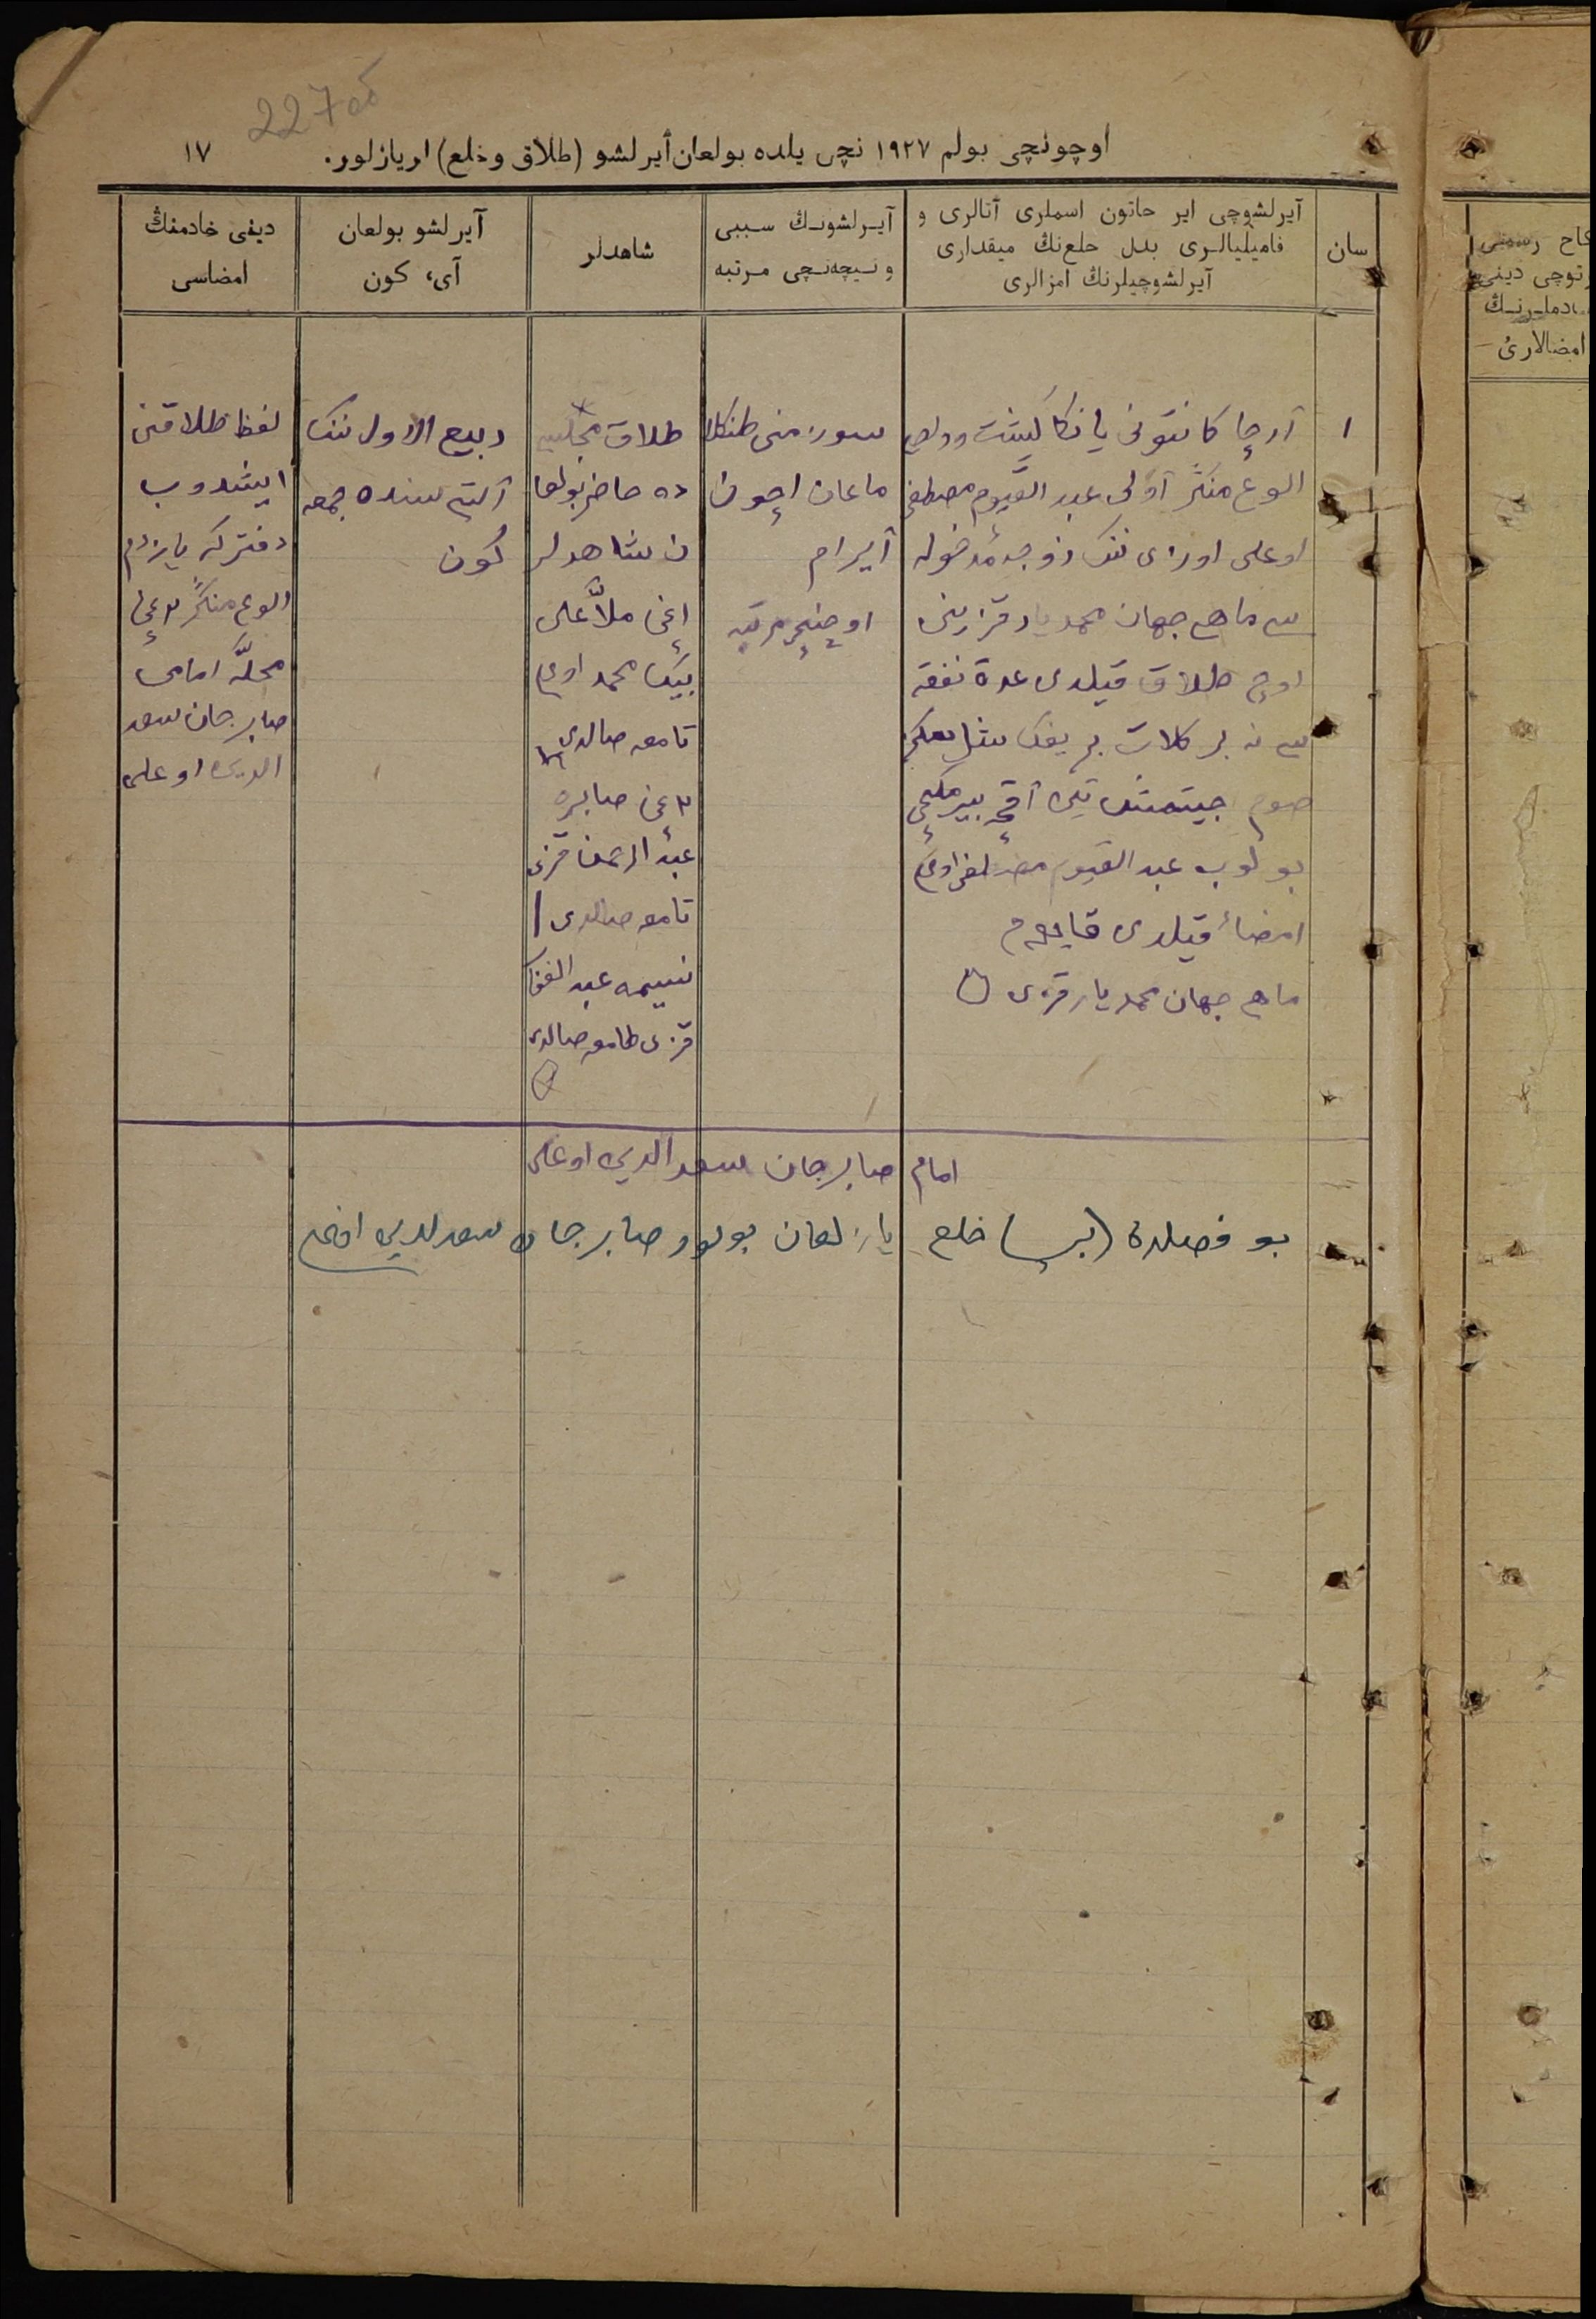 227 об
اوچونچی بولم ١٩٢٧ نچی یلده بولعان آیرلشو (طلاق وخلع) لریازلور. ١٧
سان
آیرلشوچی ایر حاتون اسملری آتالری و
فامیلیالری بدل خلع‌نڭ میقداری
آیرلشوچیلرنڭ امزالری
آیرلشونڭ سببی
و نیچه‌نچی مرتبه
شاهدلر
آیرلشو بولعان
آی، کون
دینی خادمنڭ
امضاسی
١
آرچا کانتونی یانکا کیشیت وولصی
الوع منکر آولی عبد القیوم مصطفی
اوعلی اورای ننک زوجۀ مدخوله
سی ماهی جهان محمد یار قزینی
اوچ طلاق قیلدی عدة نفقه
سی نه بر کلات بر
صوم آقچه بیرمکچی
بولوب عبد القیوم مصطفی اوعلی
امضاء قیلدی
ماهی جهان محمد یار قزی
سوزمنی طنکلا
ماعان اچون
آیرام
اوچنچی مرتبه
طلاق مجلسی
ده حاضر بولعا
ن شاهدلر
١نچی ملا علی
بیک محمد اوعلی
تامعه صالدی
٢نچی صابره
عبد الرحمن قزی
تامعه صالدی
نسیمه عبد الغفار
قزی طامعه صالدی
ربیع الاول ننک
آلتیسنده جمعه
کون
لفظ طلاقنی
ایشدوب
دفترکه یازدم
الوع منکر ٢نچی
محله امامی
صابرجان سعد
الدین اوعلی
امام صابرجان سعد الدین اوعلی
بو فصلده (بر) خلع یازلعان بولوو صابرجان سعد الدین
کاح رسمنی
رتوچی دینی
ـادملـرنـڭ
امضالاری